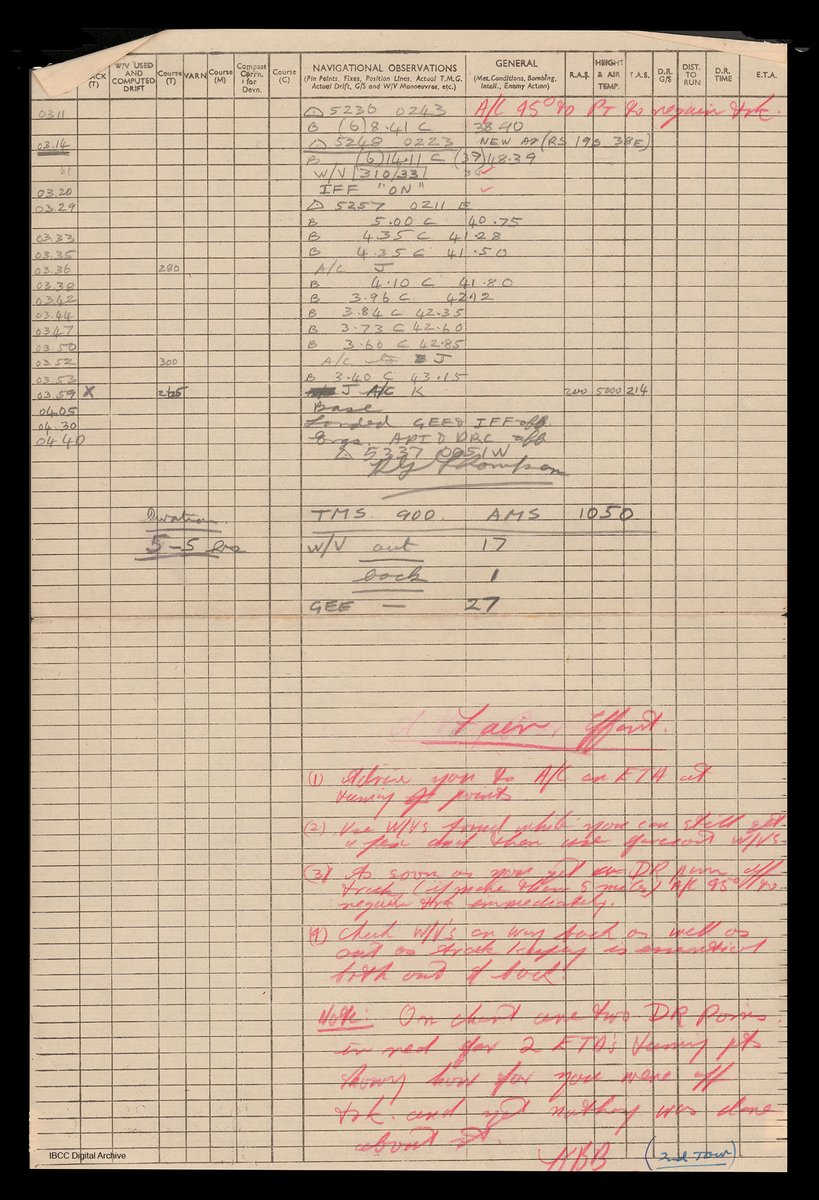 ACK (T) W/V USED AND COMPUTED DRIFT Course (T) VARN Course (M) Compass Corrn. for Devn. Course (C) NAVIGATIONAL OBSERVATIONS (Pin Points, Fixes, Position Lines, Actual T.M.G. Actual Drift, G/S and W/V Manoeuvres, etc.) GENERAL (Met. Conditions, Bombing, Intell., Enemy Action) R.A.S. HEIGHT & AIR TEMP. T.A.S. D.R. G/S DIST. TO RUN D.R. TIME E.T.A.
0311 △ 5236 0243 A/C 45° to Pt to regain trk.
B (6) 8.41 C 38.90
03.14 △ 5248 0223 NEW AP (RS 19S 38E)
B (6) 14.11 C (39) 48.39
61 W/V 310/33
03.20 IFF "ON"
03.29 △ 5257 0211 E
B 5.00 C 40.75
03.33 B 4.35 C 41.28
03.35 B 4.35 C 41.50
03.36 280 A/C J
03.38 B 4.10 C 41.80
03.42 B 3.96 C. 4292
03.44 B 3.84 C 42.35
03.47 B 3.73 C 42.60
03.50 B 3.60 C 42.85
03.52 300 A/C J
03.53 B 3.40 C 43.15
03.59 X J A/C K 200 5000 214
04.05 Base
04.30 Landed GEE & IFF off
04.40 Brgs. API & DRC off
△ 5337 0051W
Thompson
Duration TMS. 900. AMS 1050
5-5 hrs W/V out 17
back 1
GEE — 27
A Fair, Effort.
(1) Advise you to A/C on ETA at
turning points
(2) Use W/V's found while you can still get
a fix and then use forecast W/V's
(3) As soon as you get DR posn off
track, (if more than 5 miles) A/C 45° to
regain trk immediately.
(4) Check W/V's on way back as well as
out as track keeping is essential
both out & back.
Note: On chart are two DR Posns
in red for 2 ETA's turning pts
showy how far you were off
trk. and yet nothing was done
about it.
ABB (2nd Tour)
IBCC Digital Archive